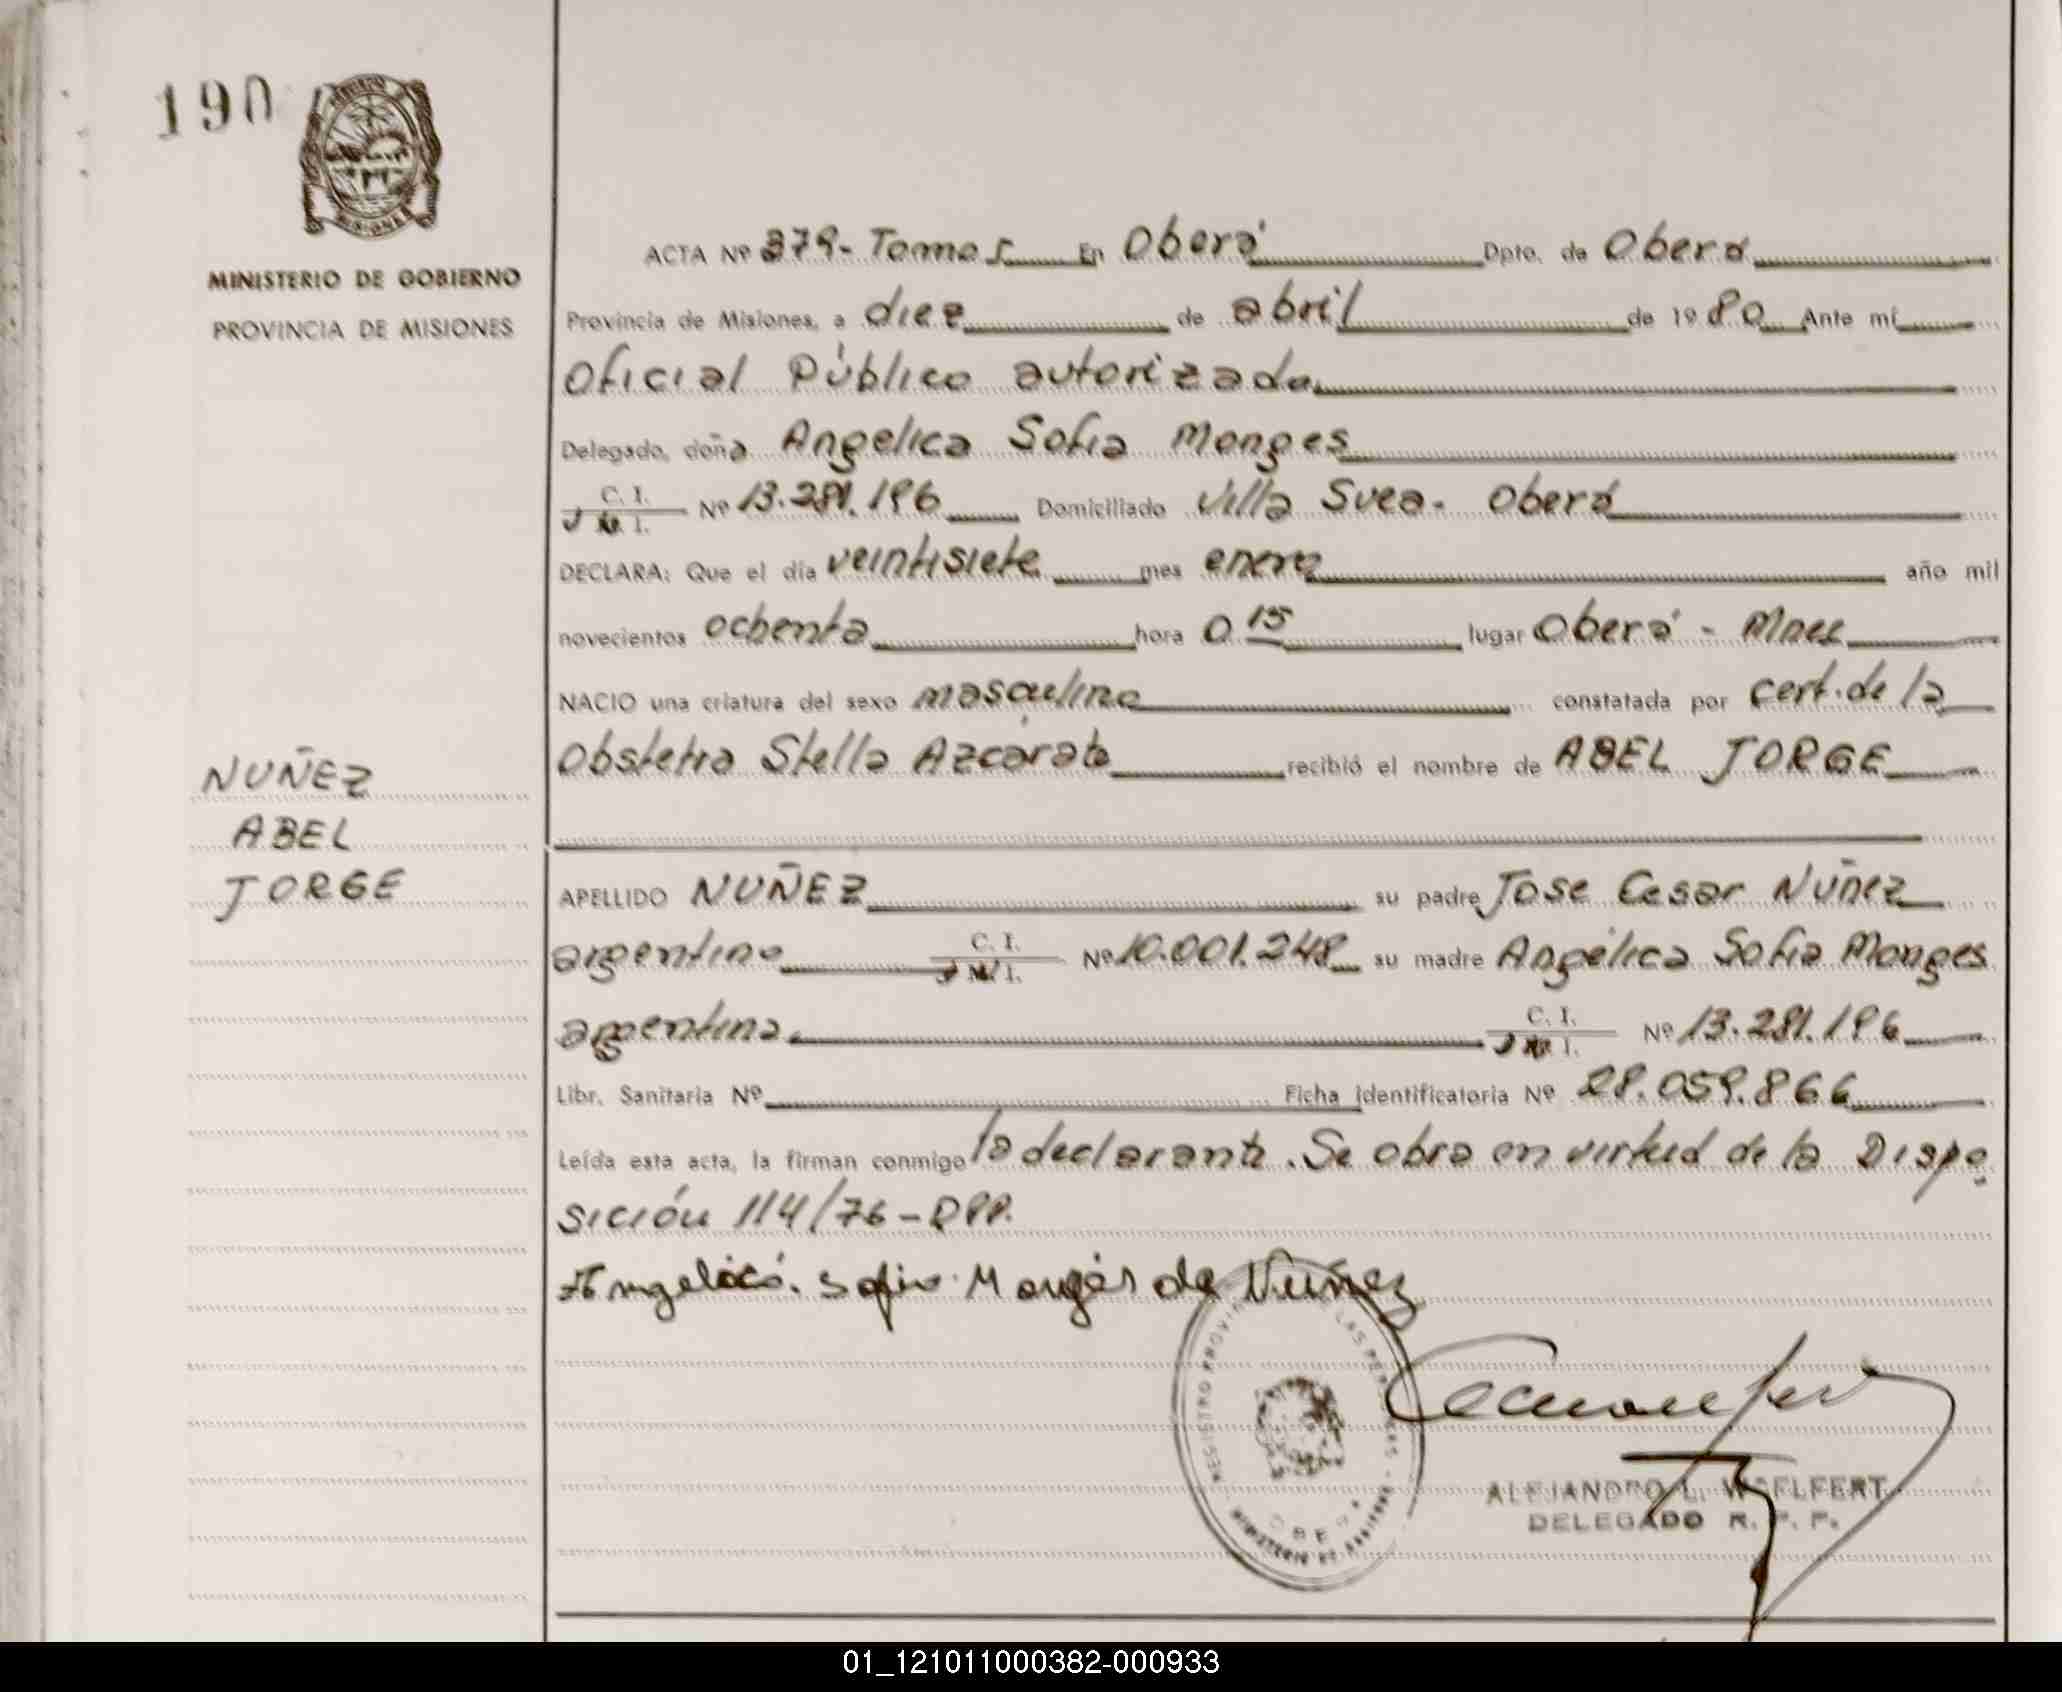 190
MINISTERIO DE GOBIERNO
PROVINCIA DE MISIONES
ACTA Nº 379- Tomo 5 En Oberá Dpto. de Oberá
Provincia de Misiones, a diez de abril de 1980 Ante mí
Oficial Público autorizado
Delegado, doña Angélica Sofia Monges
C. I. Nº 13.281.196 Domiciliado Villa Svea. Oberá
DECLARA: Que el día veintisiete mes enero año mil
novecientos ochenta hora 0 15 lugar Oberá - Mnes
NACIO una criatura del sexo masculino constatada por cert. de la
Obstetra Stella Azcárate recibió el nombre de ABEL JORGE
NUÑEZ
ABEL
JORGE
APELLIDO NUÑEZ su padre Jose Cesar Nuñez
argentino C. I. Nº 10.001.248 su madre Angélica Sofia Monges
argentina. C. I. Nº 13.281.196
Libr. Sanitaria Nº Ficha identificatoria Nº 28.059.866
Leída esta acta, la firman conmigo la declarante. Se obra en virtud de la Dispo
sición 114/76-RPP.
Angelica. Sofia Monges de Nuñez
ALEJANDRO L. WOELFERT
DELEGADO R. P. P.
01_121011000382-000933